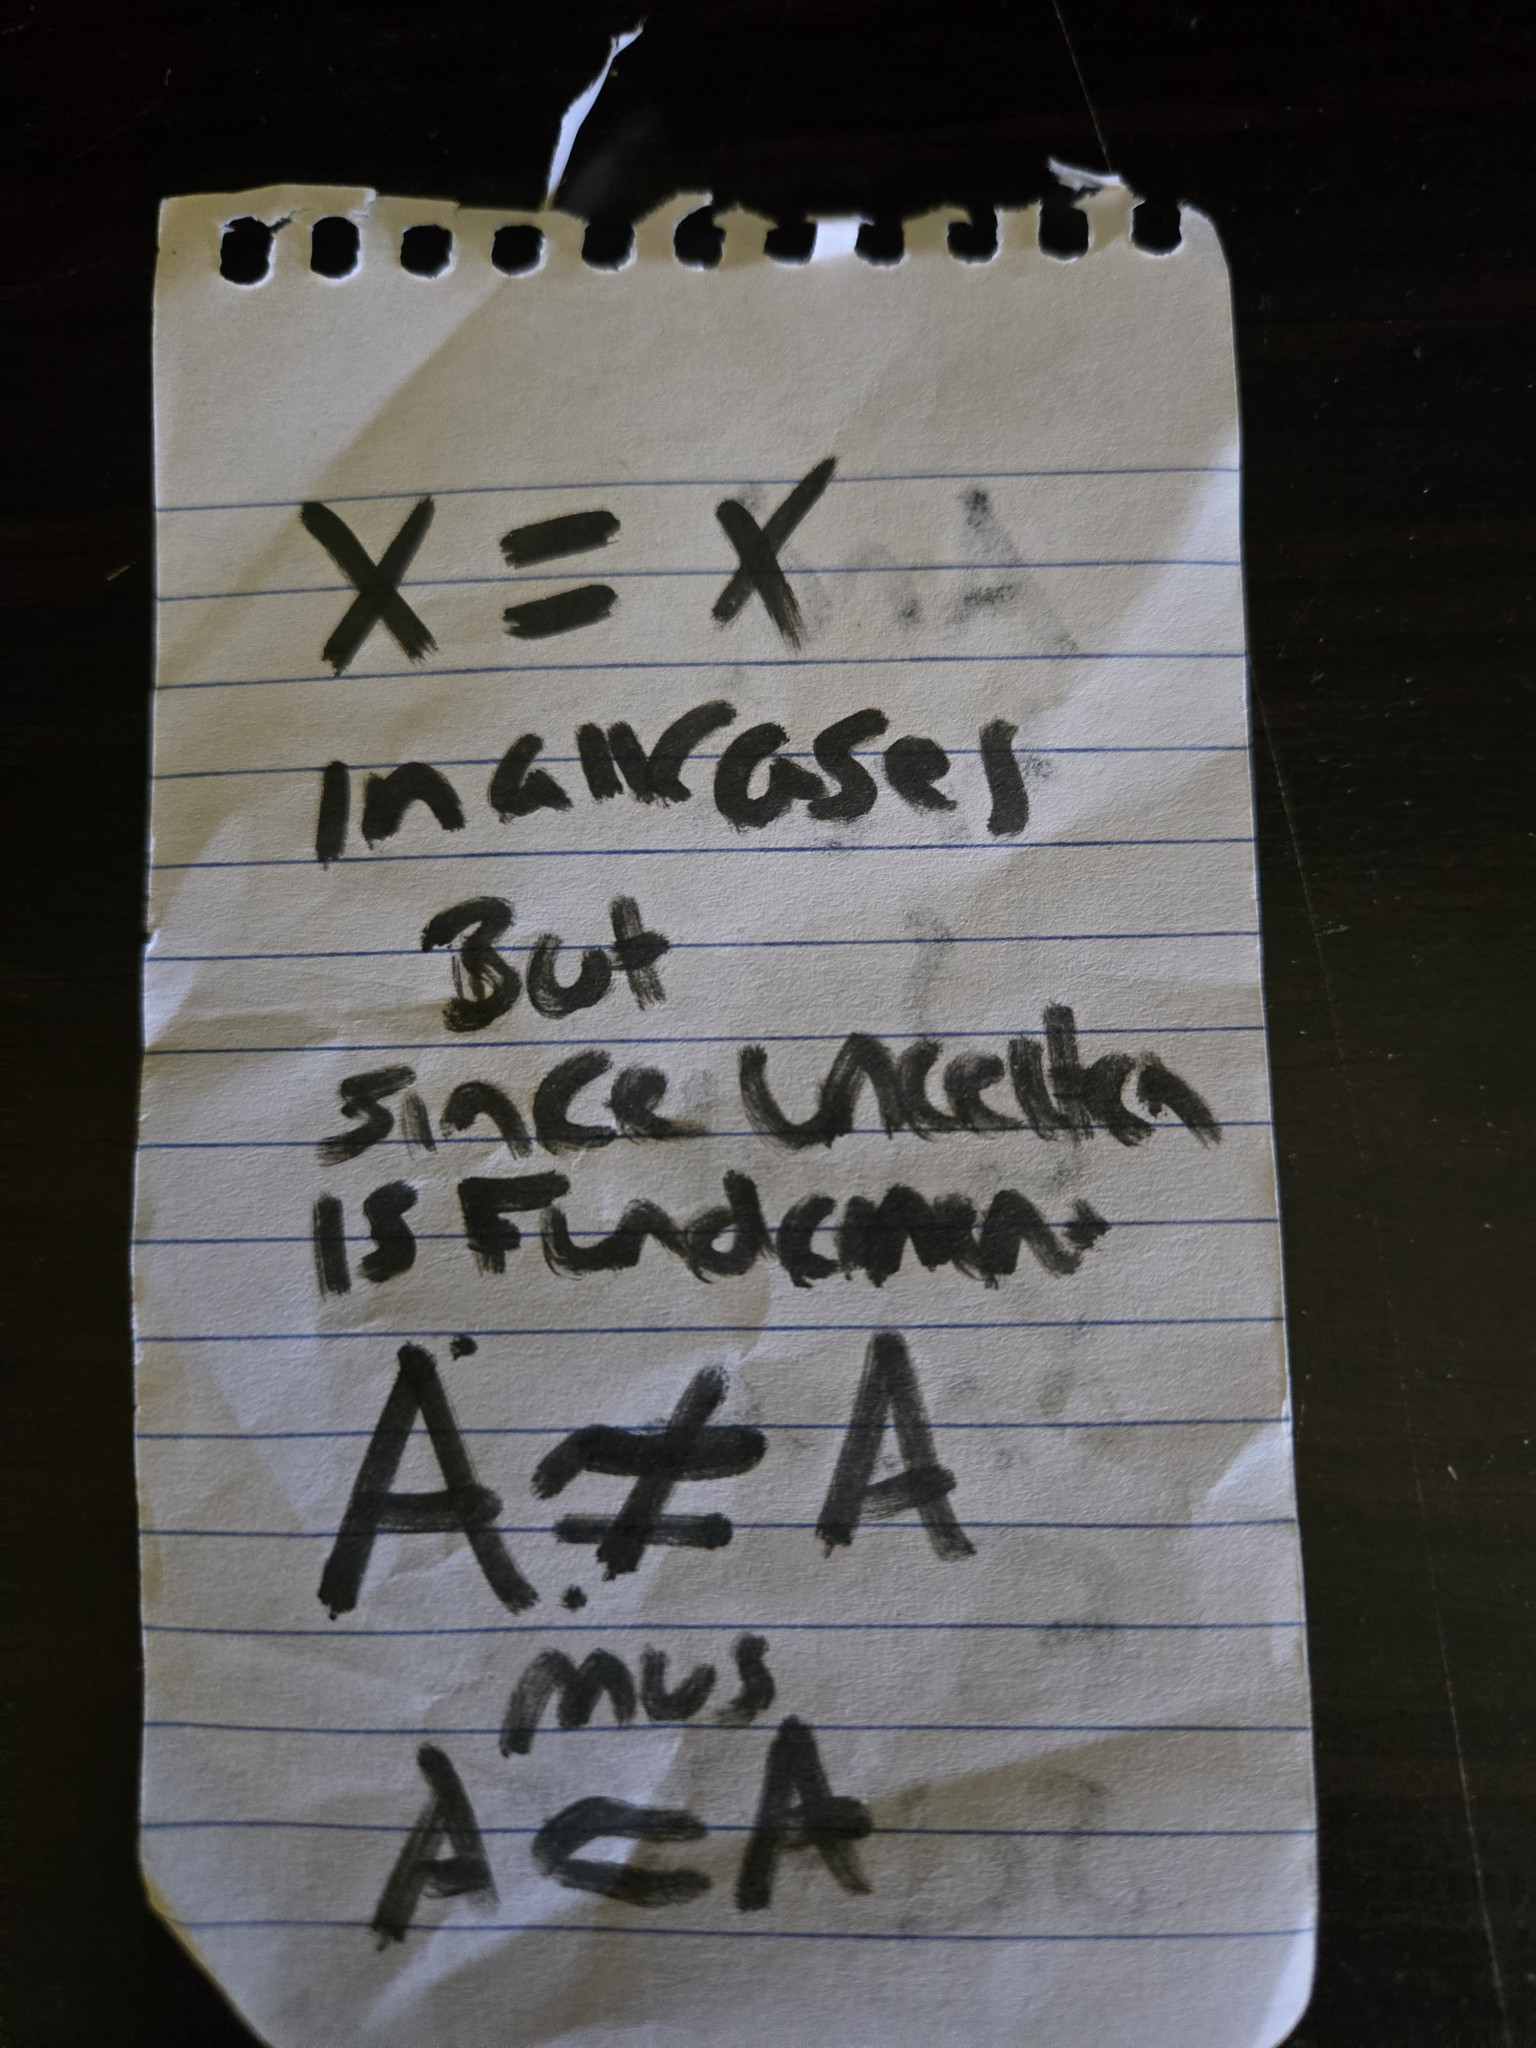 X = X
In all cases
But
since Uncertan
Is Fundamen
A ≠ A
mus
A ⊂ A